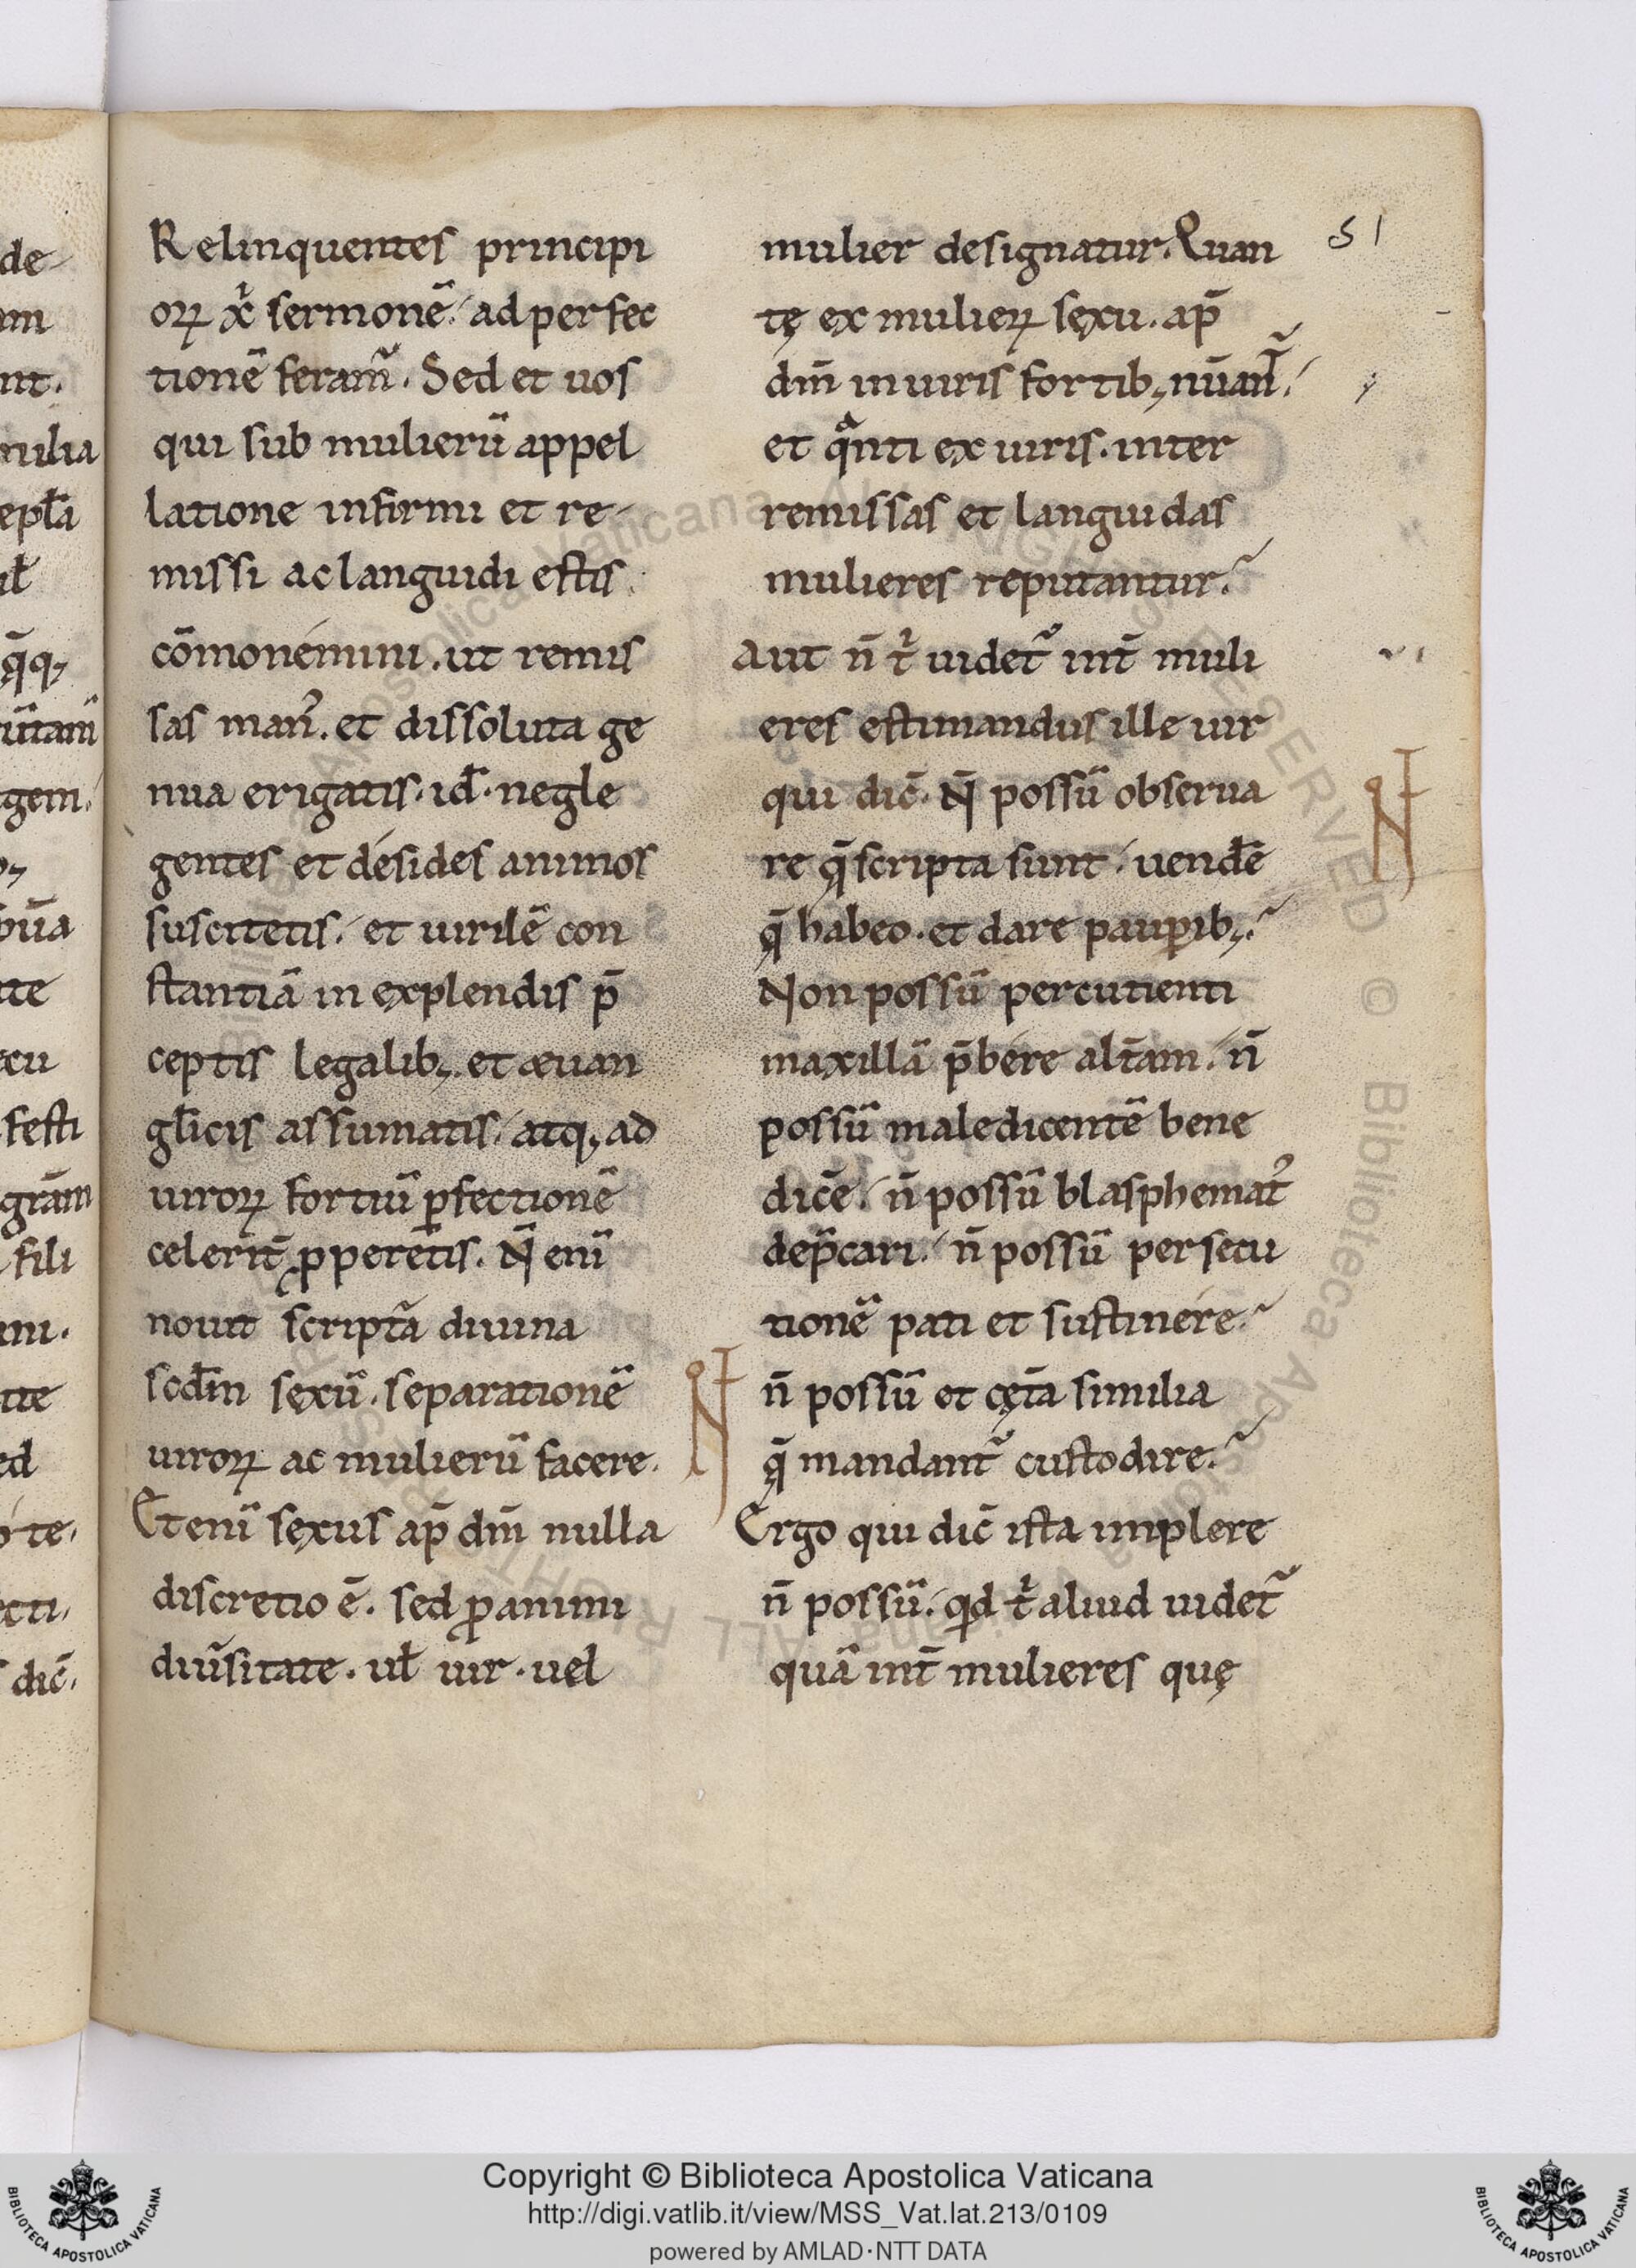 de
om
nt.
milia
epła
ił
q̄q;
rūtam̄
gem.
o;
būa
te
cu
festi
grām
fili
ni.
te
ed
o te.
cti.
dic̄.
Relinquentes principi
oꝝ xp̄i sermonē. ad perfec
tionē feram᷑. Sed et uos
qui sub mulierū appel
latione infirmi et re-
missi ac languidi estis
cōmonemini. ut remis
sas man᷑. et dissoluta ge
nua erigatis. id̄. negle
gentes et désides animos
suscitetis. et uirilē con
stantiā in explendis p̄
ceptis legalib; et æuan
gl̄icis assumatis. atq; ad
uiroꝝ fortiū ꝑfectionē
celerit̄ ꝓperetis. N̄ enī
nouit script̄a diuina
scd̄m sexū. separationē
uiroꝝ ac mulierū facere.
Etenī sexus ap̄ dm̄ nulla
discretio ē. sed ꝓ animi
diūsitate. ul̄ uir. uel
51
mulier designatur. Quan
tę ex mulieꝝ sexu. ap̄
dm̄ in uiris fortib; nūant̄᷑.
et qͣnti ex uiris. inter
remissas et languidas
mulieres reputantur.
Aut n̄ tⁱ uidet᷑ int̄ muli
eres estimandus ille uir
qui dic̄. N̄ possū obserua
re q̄ scripta sunt. uendē
q̄ habeo. et dare pauꝑib;.
Non possū percutienti
maxillā p̄bére alt̄am. n̄
possū maledicentē bene
dicē. n̄ possū blasphemat᷑
dep̄cari. n̄ possū persecu
tionē pati et sustinére.
n̄ possū et cęt̄a similia
q̄ mandant᷑ custodire.
Ergo qui dic̄ ista implere
n̄ possū. qd tⁱ aliud uidet᷑
quā int̄ mulieres quę
Copyright © Biblioteca Apostolica Vaticana
http://digi.vatlib.it/view/MSS_Vat.lat.213/0109
powered by AMLAD·NTT DATA
BIBLIOTECA APOSTOLICA VATICANA
BIBLIOTECA APOSTOLICA VATICANA